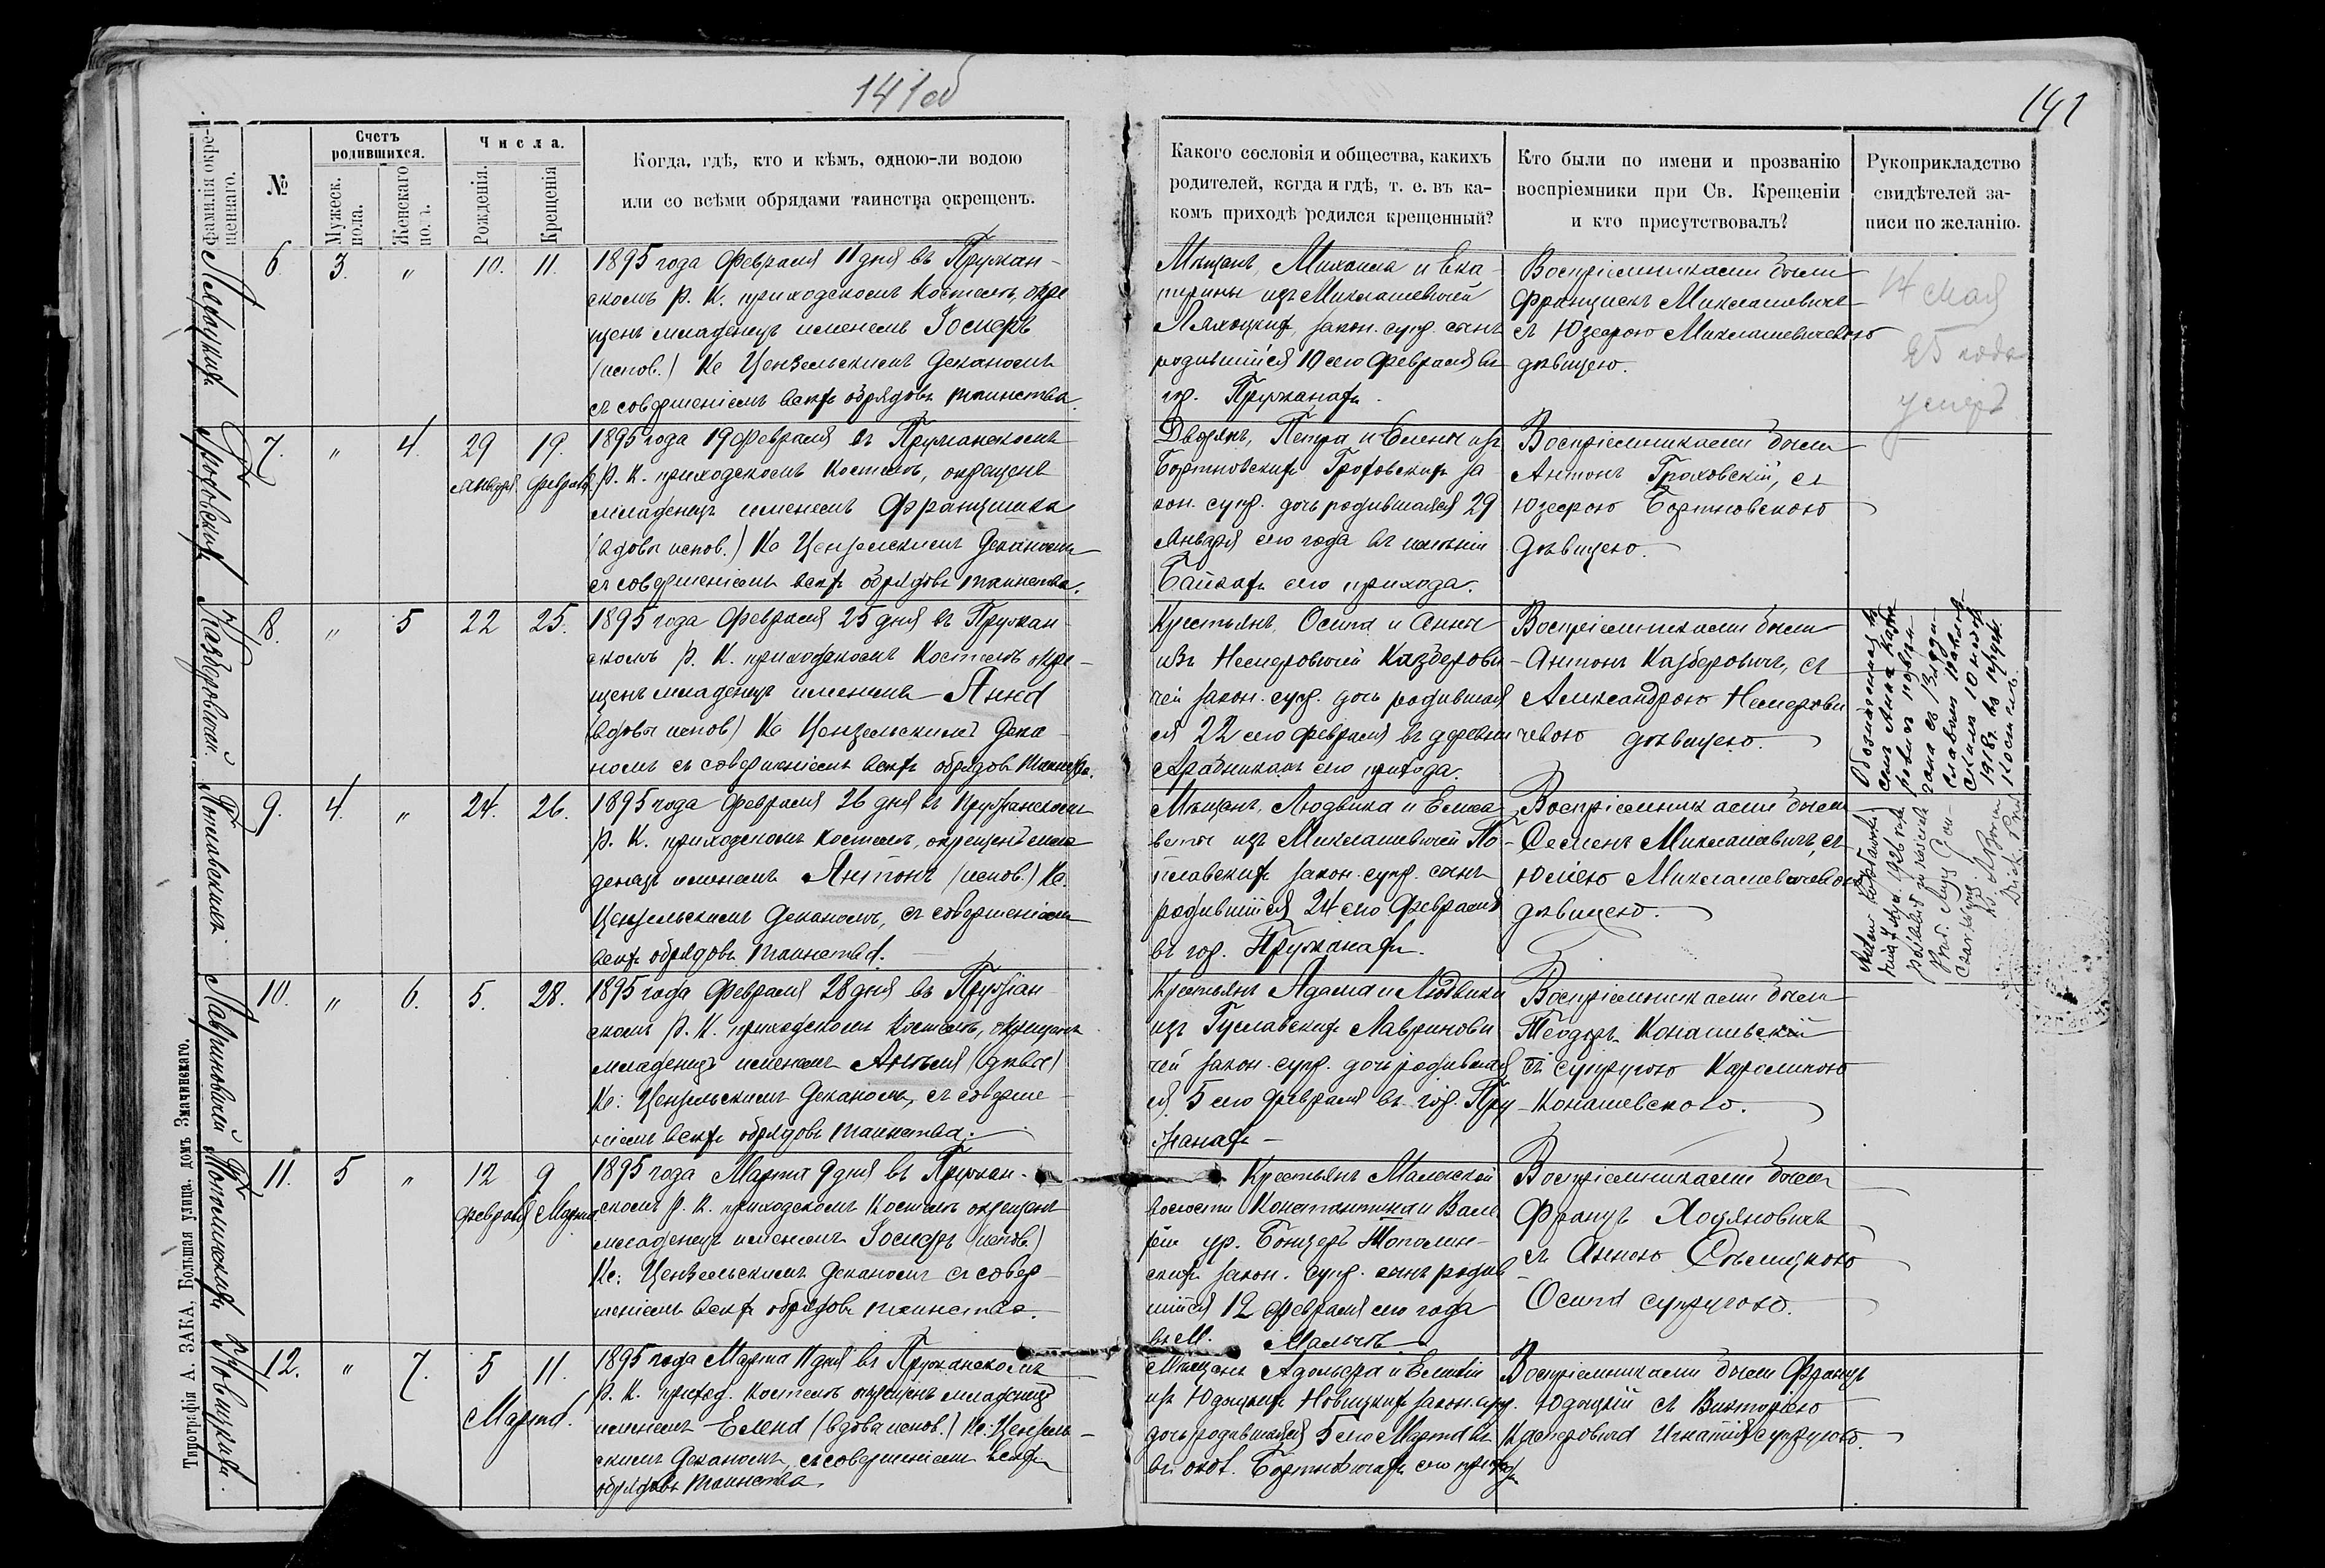 141 об
141
Фамилія окре-
щеннаго.
№
Счетъ
родившихся.
Мужеск.
пола.
Женскаго
пола.
Числа.
Рожденія.
Крещенія
Когда, гдѣ, кто и кѣмъ, одною-ли водою
или со всѣми обрядами таинства окрещенъ.
Какого сословія и общества, какихъ
родителей, когда и гдѣ, т. е. въ ка-
комъ приходѣ родился крещенный?
Кто были по имени и прозванію
воспріемники при Св. Крещеніи
и кто присутствовалъ?
Рукоприкладство
свидѣтелей за-
писи по желанію.
6. 3. " 10. 11.
1895 года Февраля 11 дня въ Пружан-
скомъ Р. К. приходскомъ Костелѣ, окре
щенъ младенецъ именемъ Іосифъ
(испов.) Кс Цензельскимъ Деканомъ
съ совершеніемъ всѣхъ обрядовъ таинства.
Мѣщанъ, Михаила и Ека-
терины изъ Миклашевичей
Ляхоцкихъ, закон. супр. сынъ
родившійся 10 сего Февраля въ
гор. Пружанахъ.
Воспріемниками были
Францискъ Миклашевичъ
съ Юзефою Миклашевичевою
дѣвицею.
14 Мая
95 года
умеръ
Гроховскихъ
7. " 4. 29 19.
Января Февраля
1895 года 19 Февраля въ Пружанскомъ
Р. К. приходскомъ Костелѣ, окрещенъ
младенецъ именемъ Францишка
(вдова испов.) Кс Цензельскимъ Деканомъ
съ совершеніемъ всѣхъ обрядовъ таинства.
Дворянъ, Петра и Елены изъ
Бортновскихъ Гроховскихъ за
кон. супр. дочь родившаяся 29
Января сего года въ имѣніи
Байкахъ сего прихода.
Воспріемниками были
Антонъ Гроховскій, съ
Юзефою Бортновскою
дѣвицею.
Казберовичей
8. " 5 22 25.
1895 года Февраля 25 дня въ Пружан-
скомъ Р. К. приходскомъ Костелѣ окре-
щенъ младенецъ именемъ Анна
(вдова испов) Кс Цензельскимъ Дека-
номъ съ совершеніемъ всѣхъ обрядовъ таинства.
Крестьянъ, Осипа и Анны
изъ Немеровичей Казберови-
чей закон. супр. дочь родившая
ся 22 сего Февраля въ деревни
Арабникахъ сего прихода.
Воспріемниками были
Антонъ Казберовичъ, съ
Александрою Немерови
чевою дѣвицею.
9. 4. " 24. 26.
1895 года Февраля 26 дня въ Пружанскомъ
Р. К. приходскомъ Костелѣ, окрещенъ мла
денецъ именемъ Антонъ (испов.) Кс.
Цензельскимъ Деканомъ, съ совершеніемъ
всѣхъ обрядовъ таинства.
Мѣщанъ, Людвика и Елиса
веты изъ Миклашевичей По-
плавскихъ закон. супр. сынъ
родившійся 24 сего Февраля
въ гор. Пружанахъ.
Воспріемниками были
Семенъ Миклашевичъ, съ
Юліею Миклашевичевою
дѣвицею.
Лавриновичей
10. " 6. 5. 28.
1895 года Февраля 28 дня въ Пружан-
скомъ Р. К. приходскомъ Костелѣ, окрещенъ
младенецъ именемъ Анѣля (дѣва)
Кс: Цензельскимъ Деканомъ, съ соверше-
ніемъ всѣхъ обрядовъ таинства.
Крестьянъ Адама и Людвики
изъ Гуславскихъ Лавринови
чей закон. супр. дочь родившая
ся 5 сего Февраля въ гор. Пру-
жанахъ
Воспріемниками были
Теодоръ Конашевскій
съ супругою Каролиною
Конашевскою.
11. 5 " 12 9
Февраля Марта
1895 года Марта 9 дня въ Пружан-
скомъ Р. К. приходскомъ Костелѣ окрещенъ
младенецъ именемъ Іосифъ (испов)
Кс: Цензельскимъ Деканомъ съ совер-
шеніемъ всѣхъ обрядовъ таинства.
Крестьянъ Малечской
волости Константина и Вале
ріи ур. Бонцеръ Тополин-
скихъ закон. супр. сынъ родив
шійся 12 Февраля сего года
въ М. Мальчѣ
Воспріемниками были
Францъ
съ Анною
Осипа супругою.
Новицкихъ.
12. " 7. 5 11.
Марта.
1895 года Марта 11 дня въ Пружанскомъ
Р. К. приход. Костелѣ окрещенъ младенецъ
именемъ Елена (вдова испов.) Кс: Цензель-
скимъ Деканомъ, съ совершеніемъ всѣхъ
обрядовъ таинства.
Мѣщанъ Адольфа и Емиліи
изъ Юдыцкихъ Новицкихъ закон. супр.
дочь родившаяся 5 сего Марта въ
въ окол. Бортновичахъ сего прихода
Воспріемниками были Францъ
Юдыцкій съ Викторіею
Касперовича Игнатія супругою.
Типографія А. ЗАКА, Большая улица, домъ Значинскаго.